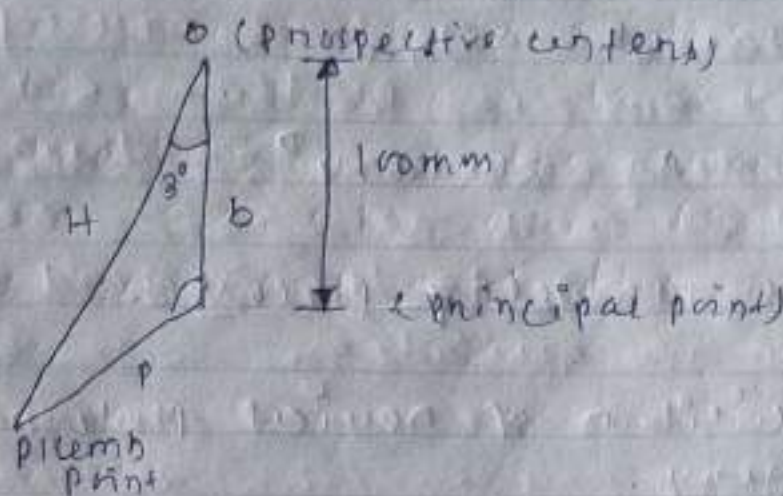 O (prospective centens)
3°
100mm
H
b
(principal point)
P
plumb
point